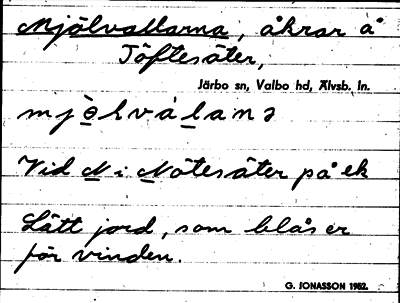 Mjölvallarna, åkrar å
Töftesäter,
Järbo sn, Valbo hd, Älvsb. ln.
Vid N i Nötesäter på ek
Lätt jord, som blåser
för vinden.
G. JONASSON 1952.